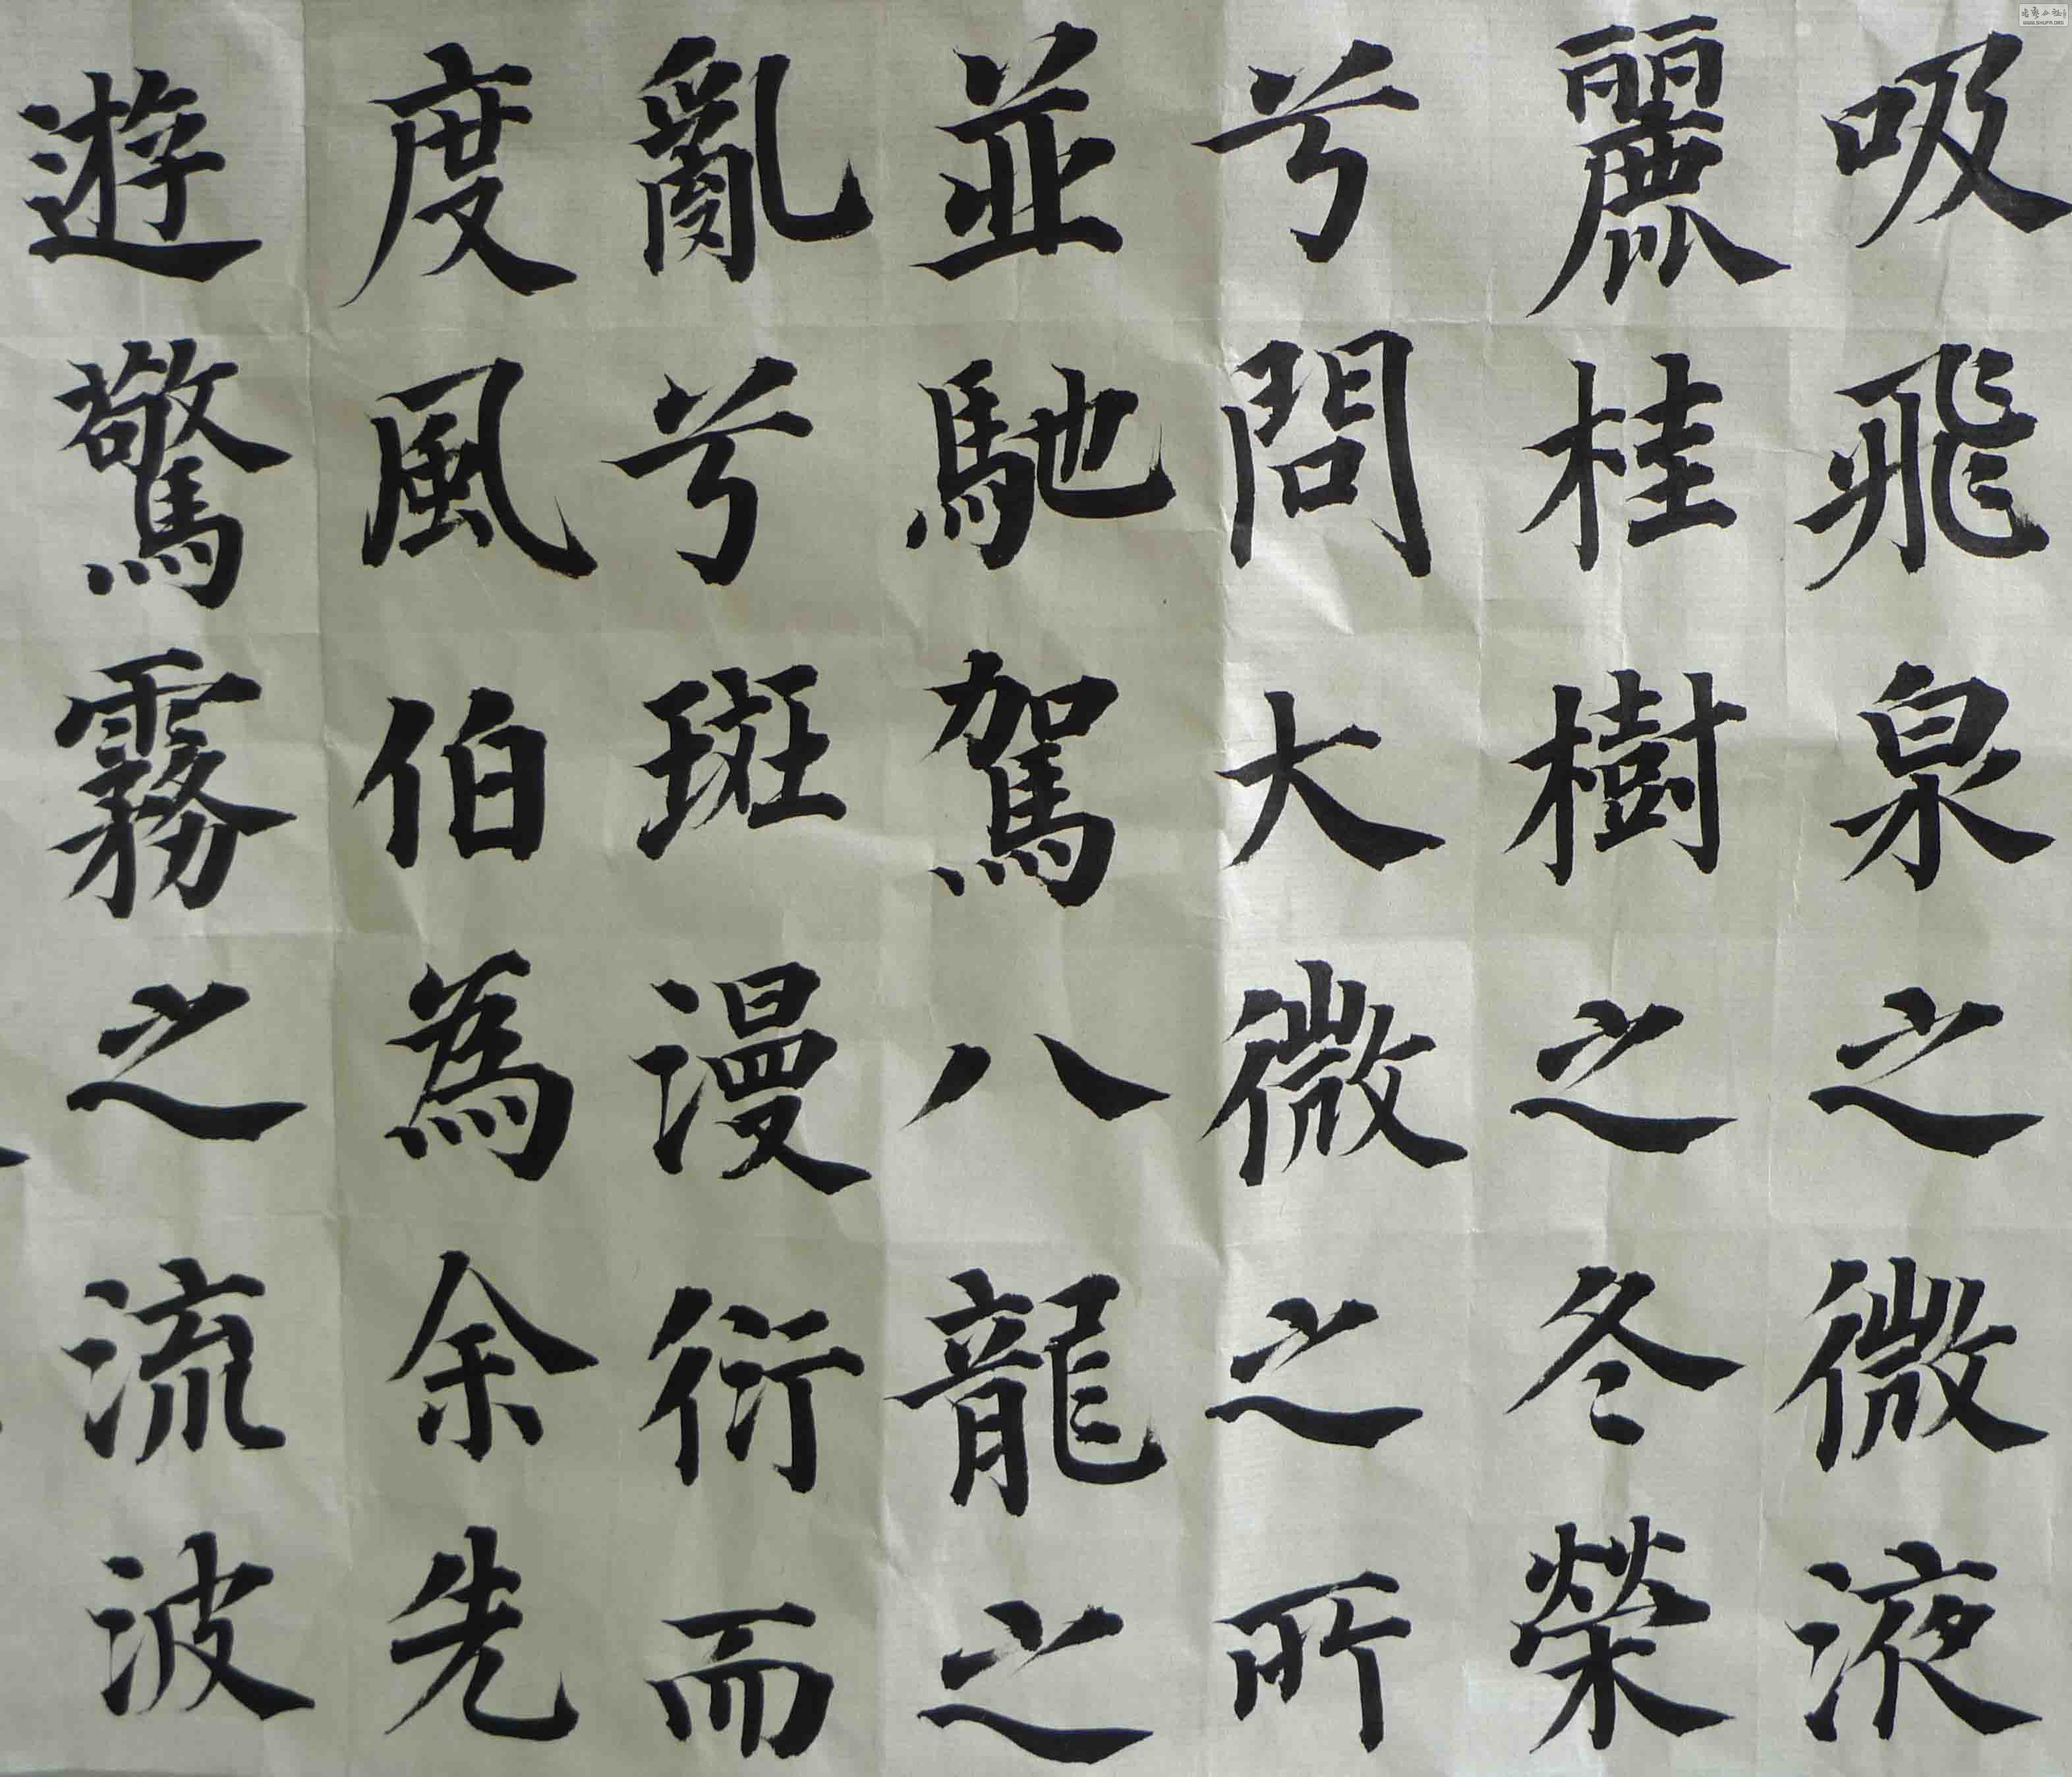 吸飛泉之微液
麗桂樹之冬榮
兮問大微之所
並馳駕八龍之
亂兮斑漫衍而
度風伯為余先
遊驚霧之流波
WWW.SHUFA.ORG